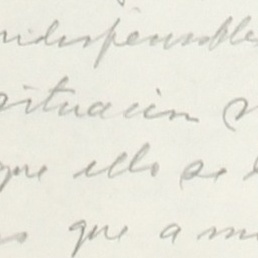 indispensables
situación
que ello se
que a